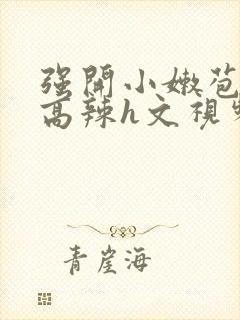 强開小嫩苞
高辣h文視
青崖海